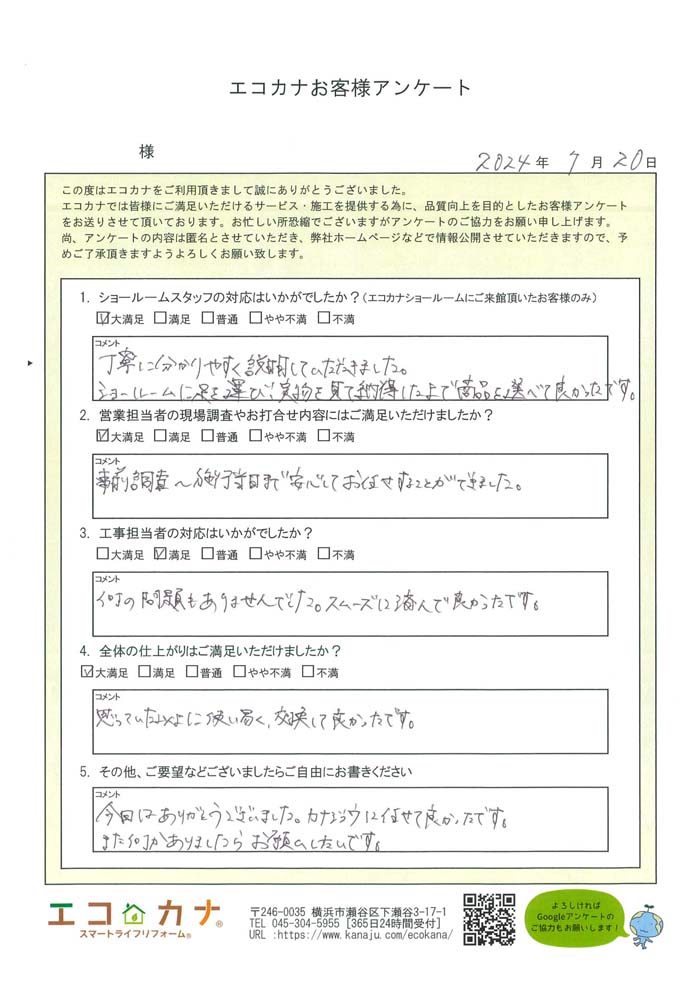 エコカナお客様アンケート
様
2024年 7月20日
この度はエコカナをご利用頂きまして誠にありがとうございました。
エコカナでは皆様にご満足いただけるサービス・施工を提供する為に、品質向上を目的としたお客様アンケート
をお送りさせて頂いております。お忙しい所恐縮でございますがアンケートのご協力をお願い申し上げます。
尚、アンケートの内容は匿名とさせていただき、弊社ホームページなどで情報公開させていただきますので、予
めご了承頂きますようよろしくお願い致します。
1. ショールームスタッフの対応はいかがでしたか？(エコカナショールームにご来館頂いたお客様のみ)
☑大満足 □満足 □普通 □やや不満 □不満
コメント
丁寧に分かりやすく説明していただきました。
ショールームに足を運び、実物を見て納得した上で商品を選べて良かったです。
2. 営業担当者の現場調査やお打合せ内容にはご満足いただけましたか？
☑大満足 □満足 □普通 □やや不満 □不満
コメント
事前調査〜施行当日まで安心しておまかせすることができました。
3. 工事担当者の対応はいかがでしたか？
□大満足 ☑満足 □普通 □やや不満 □不満
コメント
何の問題もありませんでした。スムーズに済んで良かったです。
4. 全体の仕上がりはご満足いただけましたか？
☑大満足 □満足 □普通 □やや不満 □不満
コメント
思っていたよりに使い易く、交換して良かったです。
5. その他、ご要望などございましたらご自由にお書きください
コメント
今回はありがとうございました。カナジュウに任せて良かったです。
また何かありましたらお願いしたいです。
エコカナ®
スマートライフリフォーム®
〒246-0035 横浜市瀬谷区下瀬谷3-17-1
TEL 045-304-5955 [365日24時間受付]
URL :https://www.kanaju.com/ecokana/
よろしければ
Googleアンケートの
ご協力もお願いします！